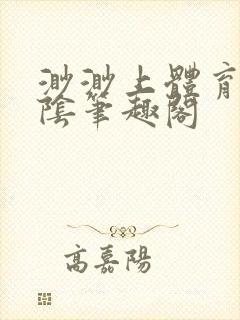 渺渺上體育
陰筆趣閣
高嘉陽